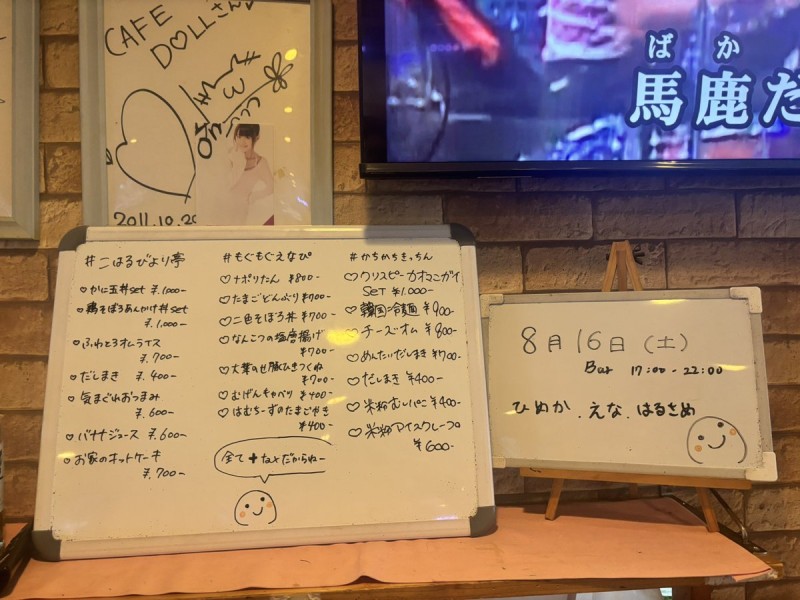 CAFE
DOLLさん♡
2011.10.20
ばか
馬鹿だ
#こはるびより亭
♡かに玉丼set ¥1,000-
♡鶏そぼろあんかけ丼set
¥1,000-
♡ふわとろオムライス
¥700-
♡だしまき ¥400-
♡気まぐれおつまみ
¥600-
♡バナナジュース ¥600-
♡お家のホットケーキ
¥700-
#もぐもぐえなぴ
♡ナポリたん ¥800-
♡たまごどんぶり ¥700-
♡二色そぼろ丼 ¥700
♡なんこつの塩唐揚げ
¥700-
♡大葉のせ豚ひきつくね
¥700-
♡むげんキャベツ ¥400-
♡はむちーずのたまごやき
¥400-
全て+taxだからねー
#かちかちきっちん
♡クリスピーカオマンガイ
SET ¥1.000-
♡韓国冷麺 ¥900-
♡チーズオム ¥800-
♡めんたいだしまき ¥700-
♡だしまき ¥400-
♡米粉むしパン ¥400-
♡米粉アイスクレープ
¥600-
8月16日(土)
Bar 17:00-22:00
ひめか.えな.はるさめ